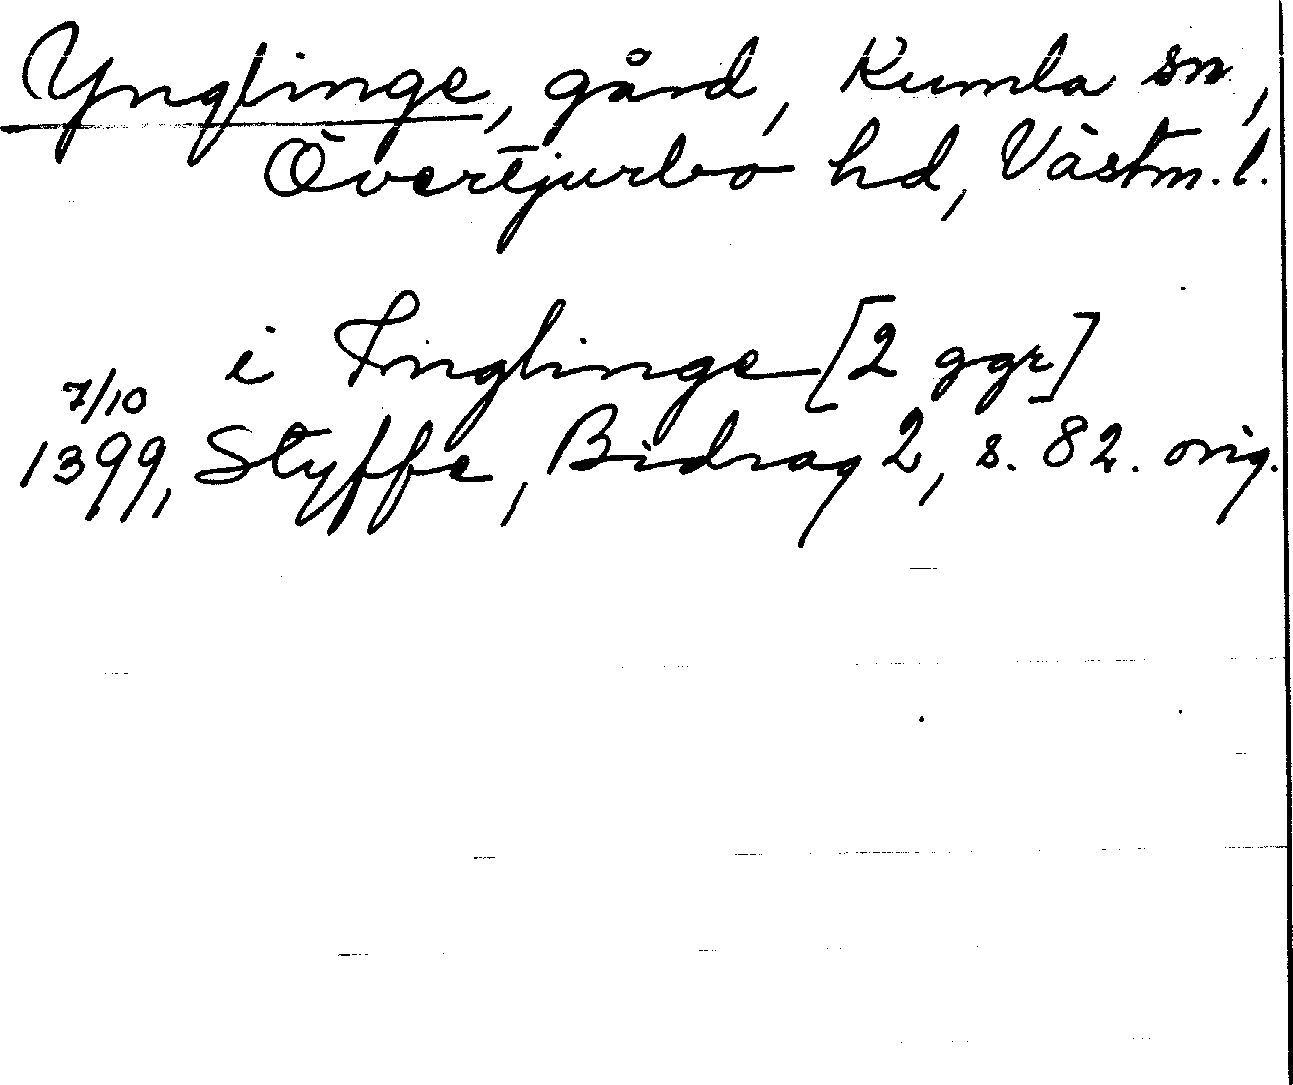 Ynglinge, gård, Kumla sn,
Övertjurbo hd, Västm. l.
i Inglinge [2 ggr]
7/10
1399, Styffe, Bidrag 2, s. 82. orig.